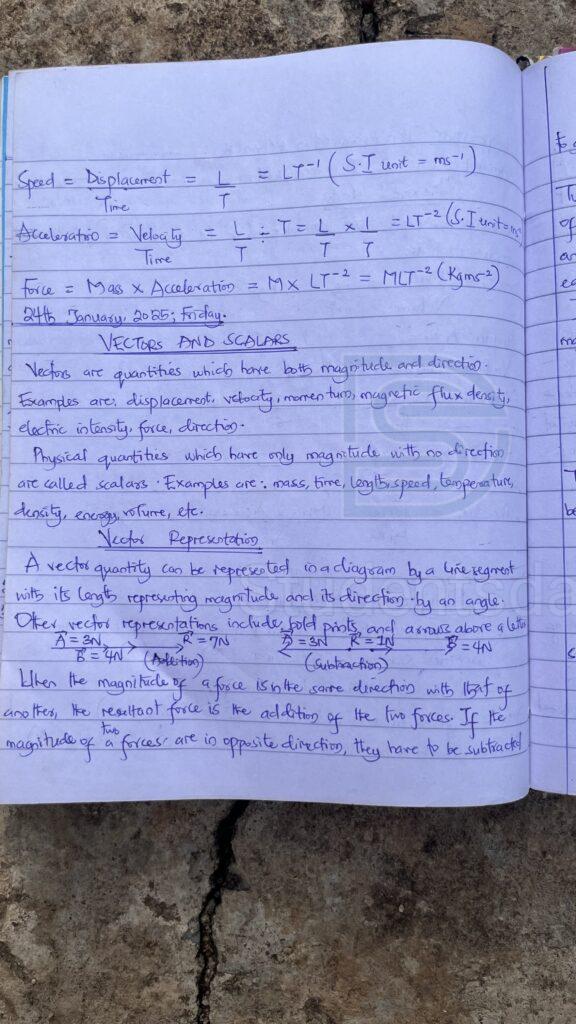 Speed = Displacement/Time = L/T = LT⁻¹ (S.I unit = ms⁻¹)
Acceleratio = Velocity/Time = L/T ÷ T = L/T × 1/T = LT⁻² (S.I unit = ms
Force = Mass × Acceleration = M × LT⁻² = MLT⁻² (Kgms⁻²)
24th January, 2025; Friday.
VECTORS AND SCALARS
Vectors are quantities which have both magnitude and direction.
Examples are; displacement, velocity, momentum, magnetic flux density,
electric intensity, force, direction.
Physical quantities which have only magnitude with no direction
are called scalars. Examples are: mass, time, length, speed, temperature,
density, energy, volume, etc.
Vector Representation
A vector quantity can be represented in a diagram by a line segment
with its length representing magnitude and its direction by an angle.
Other vector representations include, bold prints, and arrows above a letter
A = 3N R = 7N A = 3N R = 1N B = 4N
B = 4N (Addition) (Subtraction)
When the magnitude of a force is in the same direction with that of
another, the resultant force is the addition of the two forces. If the
magnitude of two forces are in opposite direction, they have to be subtracted